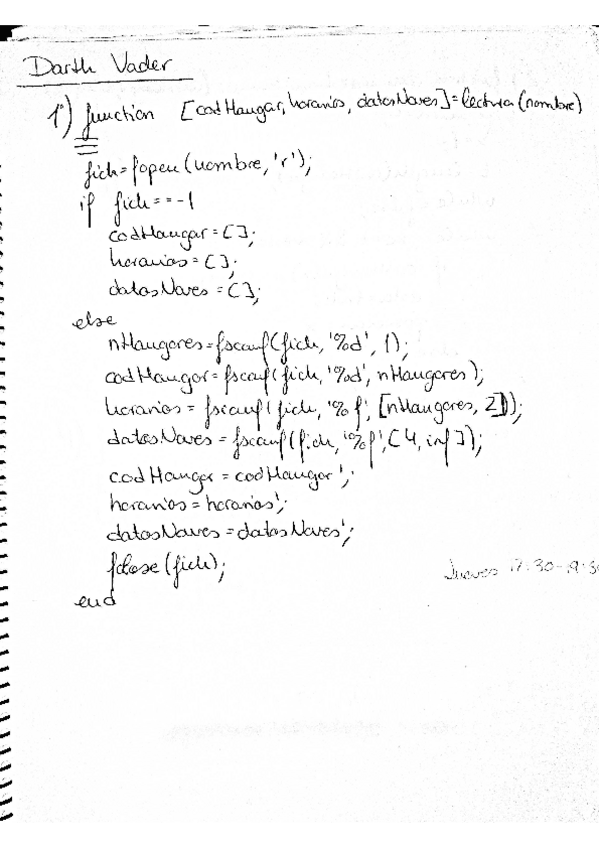 Darth Vader
1º) function [codHangar, horarios, datosNaves]=lectura(nombre)
fich=fopen(nombre,'r');
if fich==-1
codHangar=[];
horarios=[];
datosNaves=[];
else
nHangares=fscanf(fich,'%d',1);
codHangar=fscanf(fich,'%d',nHangares);
horarios=fscanf(fich,'%f',[nHangares,2]);
datosNaves=fscanf(fich,'%f',[4,inf]);
codHangar=codHangar';
horarios=horarios';
datosNaves=datosNaves';
fclose(fich);
Jueves 17:30-19:30
end